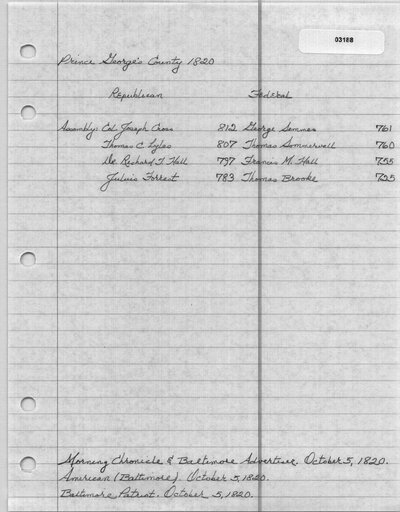 03188
Prince George's County 1820
Republican Federal
Assembly: Col. Joseph Cross 812 George Semmes 761
Thomas C. Lyles 807 Thomas Sommervell 760
Dr. Richard T. Hall 797 Francis M. Hall 755
Juluis Forrest 783 Thomas Brooke 725
Morning Chronicle & Baltimore Advertiser. October 5, 1820.
American (Baltimore). October 5, 1820.
Baltimore Patriot. October 5, 1820.